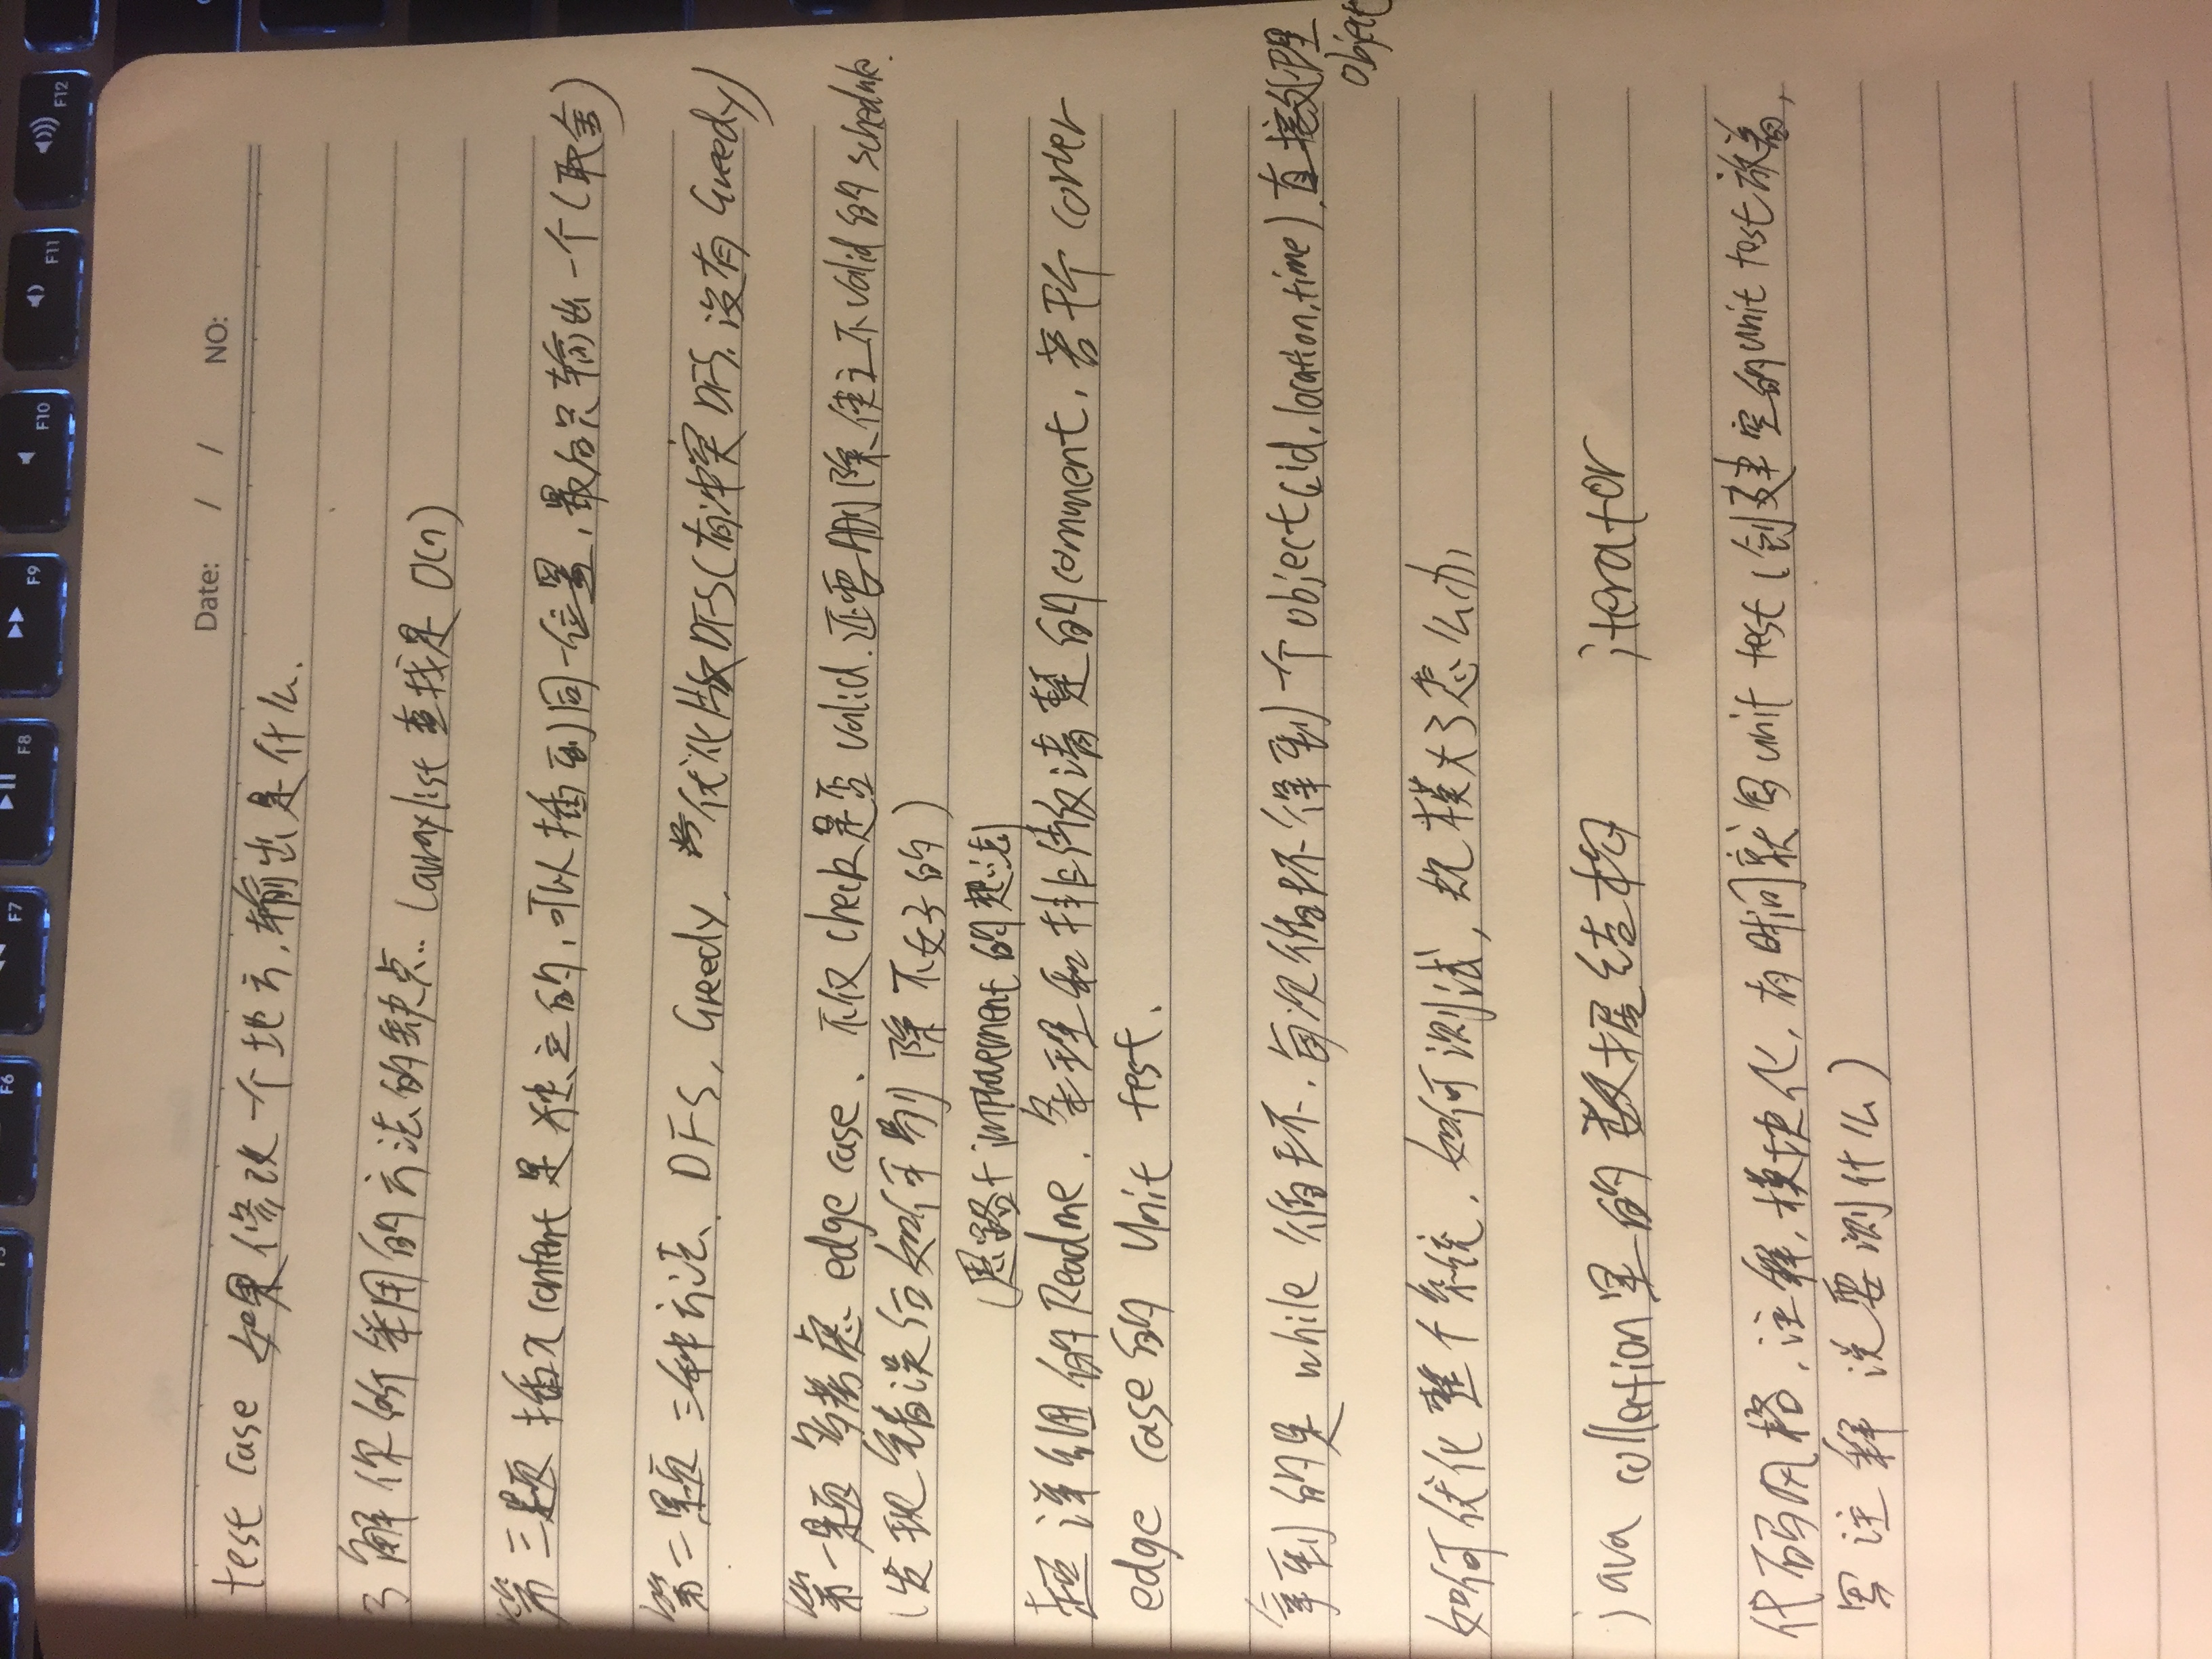 F6 F7 F8 F9 F10 F11 F12
Date: / / NO:
test case 如果修改一个地方,输出是什么.
了解你所采用的方法的缺点.. (arraylist 查找是 O(n)
第三题 插入content是独立的,可以插到同一位置,最后只输出一个(取舍)
第二题 三种方法. DFS, Greedy, 优化版DFS(有冲突DFS.没有Greedy)
第一题 多考虑 edge case. 不仅check是否valid.还要删除使之不valid的schedule.
(发现错误后如何剔除不好的)
(思路+improvement的想法)
超详细的Readme. 条理和排版清楚的comment, 若干个corner
edge case的 Unit test.
拿到的是while循环.每次循环得到一个object(id,location,time).直接处理
object
如何优化整个系统.如何测试,规模大了怎么办
java collection里的数据结构 iterator
代码风格.注释,模块化,有时间就写unit test(创建空的unit test放着,
写注释 说要测什么)